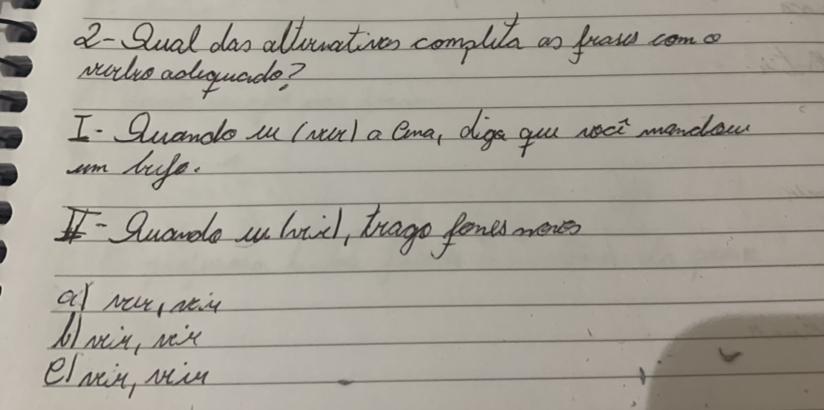 2- Qual das alternativas completa as frases com o
verbo adequado?
I- Quando eu (ver) a Ana, diga que você mandou
um beijo.
II- Quando eu (vir), trago fones novos
a) ver, vir
b) vir, vir
c) vir, vier